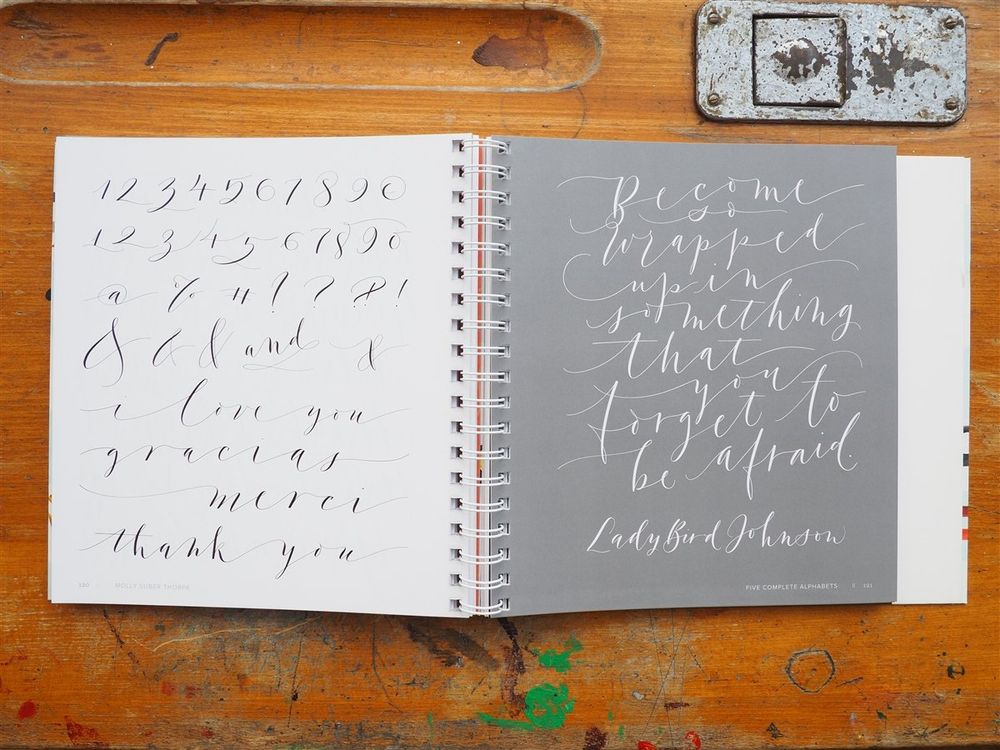 1 2 3 4 5 6 7 8 9 0
1 2 3 4 5 6 7 8 9 0
@ % # ! ? & !
& & & and &
i love you
gracias
merci
thank you
120 MOLLY SUBER THORPE
Become
so
wrapped
up in
something
that
you
forget to
be afraid.
Lady Bird Johnson
FIVE COMPLETE ALPHABETS 121